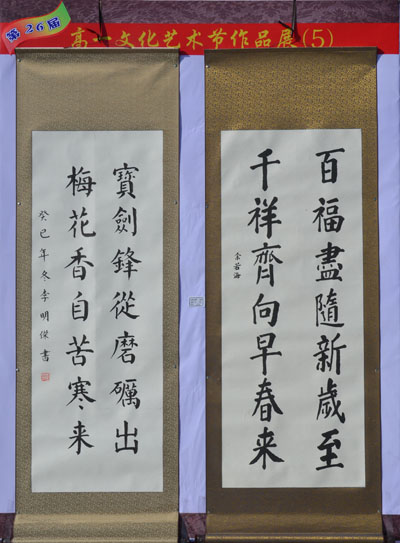 第26届
高一文化艺术节作品展(5)
寶劍鋒從磨礪出
梅花香自苦寒来
癸巳年冬李明傑書
百福盡隨新歲至
千祥齊向早春来